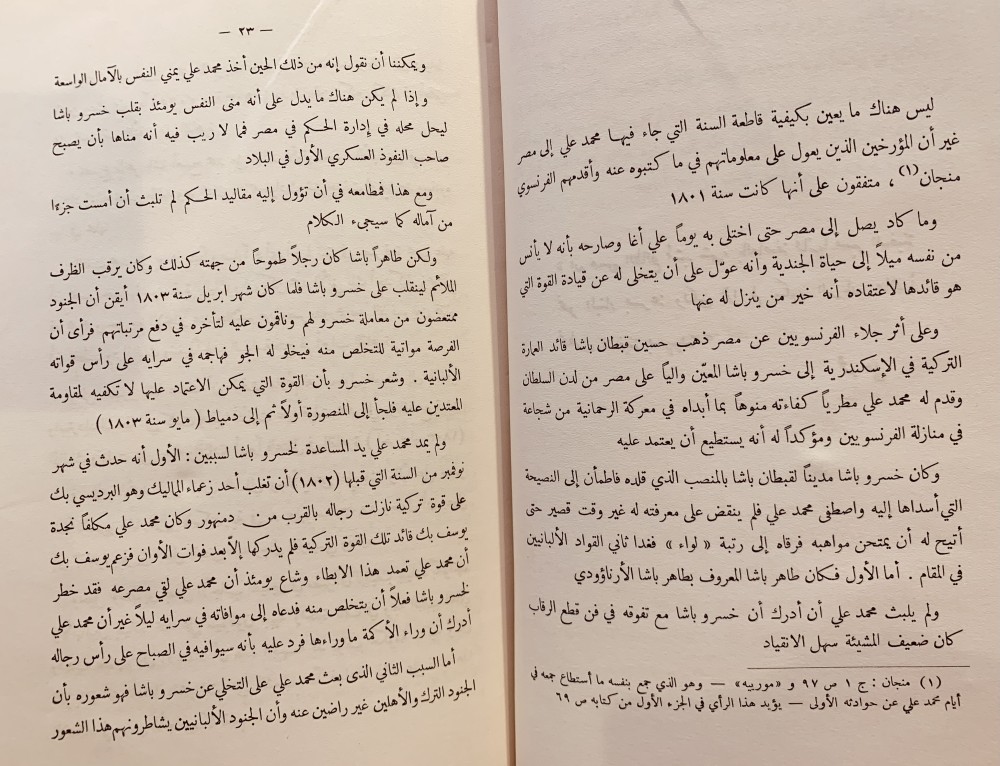 ليس هناك ما يعين بكيفية قاطعة السنة التي جاء فيها محمد علي إلى مصر
غير أن المؤرخين الذين يعول على معلوماتهم في ما كتبوه عنه وأقدمهم الفرنسوي
منجان(١) ، متفقون على أنها كانت سنة ١٨٠١
وما كاد يصل إلى مصر حتى اختلى به يوماً علي أغا وصارحه بأنه لا يأنس
من نفسه ميلاً إلى حياة الجندية وأنه عوّل على أن يتخلى له عن قيادة القوة التي
هو قائدها لاعتقاده أنه خير من ينزل له عنها
وعلى أثر جلاء الفرنسويين عن مصر ذهب حسين قبطان باشا قائد العمارة
التركية في الإسكندرية إلى خسرو باشا المعيّن والياً على مصر من لدن السلطان
وقدم له محمد علي مطرياً كفاءته منوهاً بما أبداه في معركة الرحمانية من شجاعة
في منازلة الفرنسويين ومؤكداً له أنه يستطيع أن يعتمد عليه
وكان خسرو باشا مديناً لقبطان باشا بالمنصب الذي قلده فاطمأن إلى النصيحة
التي أسداها إليه واصطفى محمد علي فلم ينقض على معرفته له غير وقت قصير حتى
أتيح له أن يمتحن مواهبه فرقاه إلى رتبة « لواء » فغدا ثاني القواد الألبانيين
في المقام . أما الأول فكان طاهر باشا المعروف بطاهر باشا الأرناؤودي
ولم يلبث محمد علي أن أدرك أن خسرو باشا مع تفوقه في فن قطع الرقاب
كان ضعيف المشيئة سهل الانقياد
(١) منجان : ج ١ ص ٩٧ و «مورييه» — وهو الذي جمع بنفسه ما أستطاع جمعه في
أيام محمد علي عن حوادثه الأولى — يؤيد هذا الرأي في الجزء الأول من كتابه ص ٦٩
— ٢٣ —
ويمكننا أن نقول إنه من ذلك الحين أخذ محمد علي يمني النفس بالآمال الواسعة
وإذا لم يكن هناك ما يدل على أنه منى النفس يومئذ بقلب خسرو باشا
ليحل محله في إدارة الحكم في مصر فما لا ريب فيه أنه مناها بأن يصبح
صاحب النفوذ العسكري الأول في البلاد
ومع هذا فمطامعه في أن تؤول إليه مقاليد الحكم لم تلبث أن أمست جزءا
من آماله كما سيجيء الكلام
ولكن طاهراً باشا كان رجلاً طموحاً من جهته كذلك وكان يرقب الظرف
الملائم لينقلب على خسرو باشا فلما كان شهر ابريل سنة ١٨٠٣ أيقن أن الجنود
ممتعضون من معاملة خسرو لهم وناقمون عليه لتأخره في دفع مرتباتهم فرأى أن
الفرصة مواتية للتخلص منه فيخلو له الجو فهاجمه في سرايه على رأس قواته
الألبانية . وشعر خسرو بأن القوة التي يمكن الاعتماد عليها لا تكفيه لمقاومة
المعتدين عليه فلجأ إلى المنصورة أولاً ثم إلى دمياط ( مايو سنة ١٨٠٣ )
ولم يمد محمد علي يد المساعدة لخسرو باشا لسببين : الأول أنه حدث في شهر
نوفمبر من السنة التي قبلها (١٨٠٢) أن تغلب أحد زعماء المماليك وهو البرديسي بك
على قوة تركية نازلت رجاله بالقرب من دمنهور وكان محمد علي مكلفاً نجدة
يوسف بك قائد تلك القوة التركية فلم يدركها إلاّ بعد فوات الأوان فزعم يوسف بك
أن محمد علي تعمد هذا الابطاء وشاع يومئذ أن محمد علي لقي مصرعه فقد خطر
لخسرو باشا فعلاً أن يتخلص منه فدعاه إلى موافاته في سرايه ليلاً غير أن محمد علي
أدرك أن وراء الأكمة ما وراءها فرد عليه بأنه سيوافيه في الصباح على رأس رجاله
أما السبب الثاني الذى بعث محمد علي على التخلي عن خسرو باشا فهو شعوره بأن
الجنود الترك والأهلين غير راضين عنه وأن الجنود الألبانيين يشاطرونهم هذا الشعور